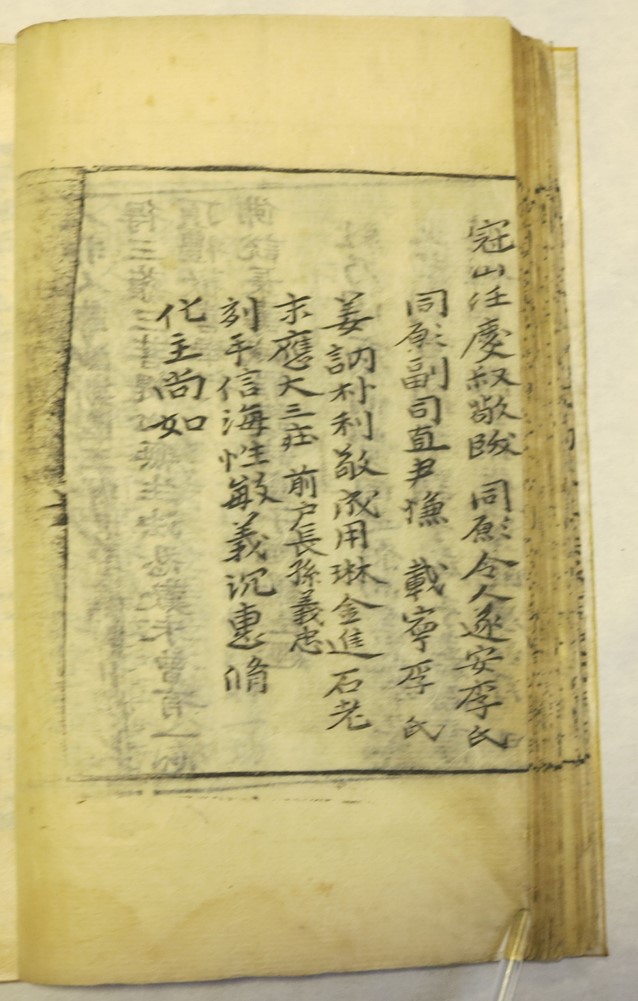 冠山任慶叔敬跋 同愿令人遂安李氏
同愿副司直尹㺌 載寧李氏
姜訥朴利敬成用琳金進石老
末應大三庄 前戶長孫義忠
刻手信海性敏義沉惠脩
化主尚如